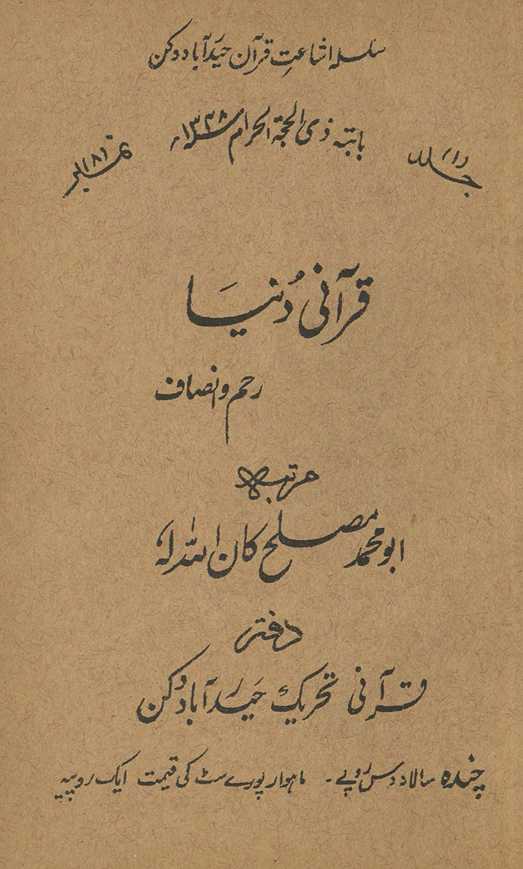 سلسلہ اشاعتِ قرآن حیدرآباد دکن
جلد (۱) بابتہ ذی الحجۃ الحرام ۱۳۳۸ھ نمبر (۸)
قرآنی دُنیا
رحم و انصاف
مرتبہ
ابو محمد مصلح کان اللہ لہٗ
دفتر
قرآنی تحریک حیدرآباد دکن
چندہ سالانہ دس روپے۔ ماہوار پورے سٹ کی قیمت ایک روپیہ